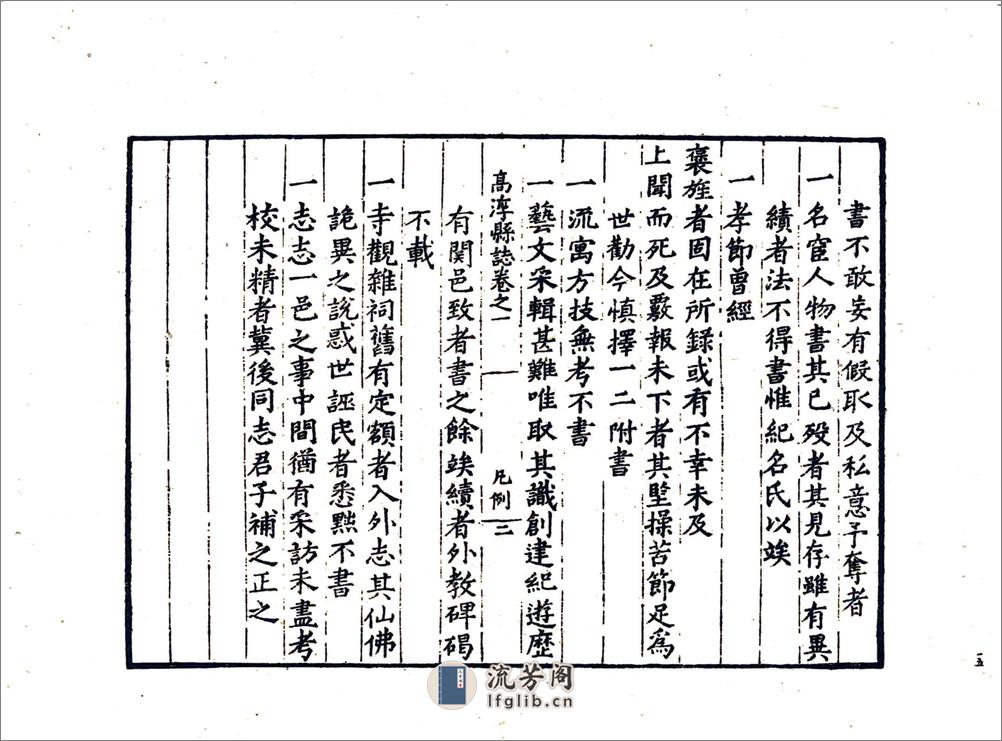 書不敢妄有假取及私意予奪者
一名宦人物書其已歿者其見存雖有異
績者法不得書惟紀名氏以竢
一孝節曾經
襃旌者固在所録或有不幸未及
上聞而死及覈報未下者其堅操苦節足爲
世勸今慎擇一二附書
一流寓方技無考不書
一藝文采輯甚難唯取其識創建紀遊歷
高淳縣誌卷之一 凡例 三
有關邑致者書之餘竢續者外教碑碣
不載
一寺觀雜祠舊有定額者入外志其仙佛
詭異之說惑世誣民者悉黜不書
一志志一邑之事中間猶有采訪未盡考
校未精者冀後同志君子補之正之
一五
流芳阁
lfglib.cn